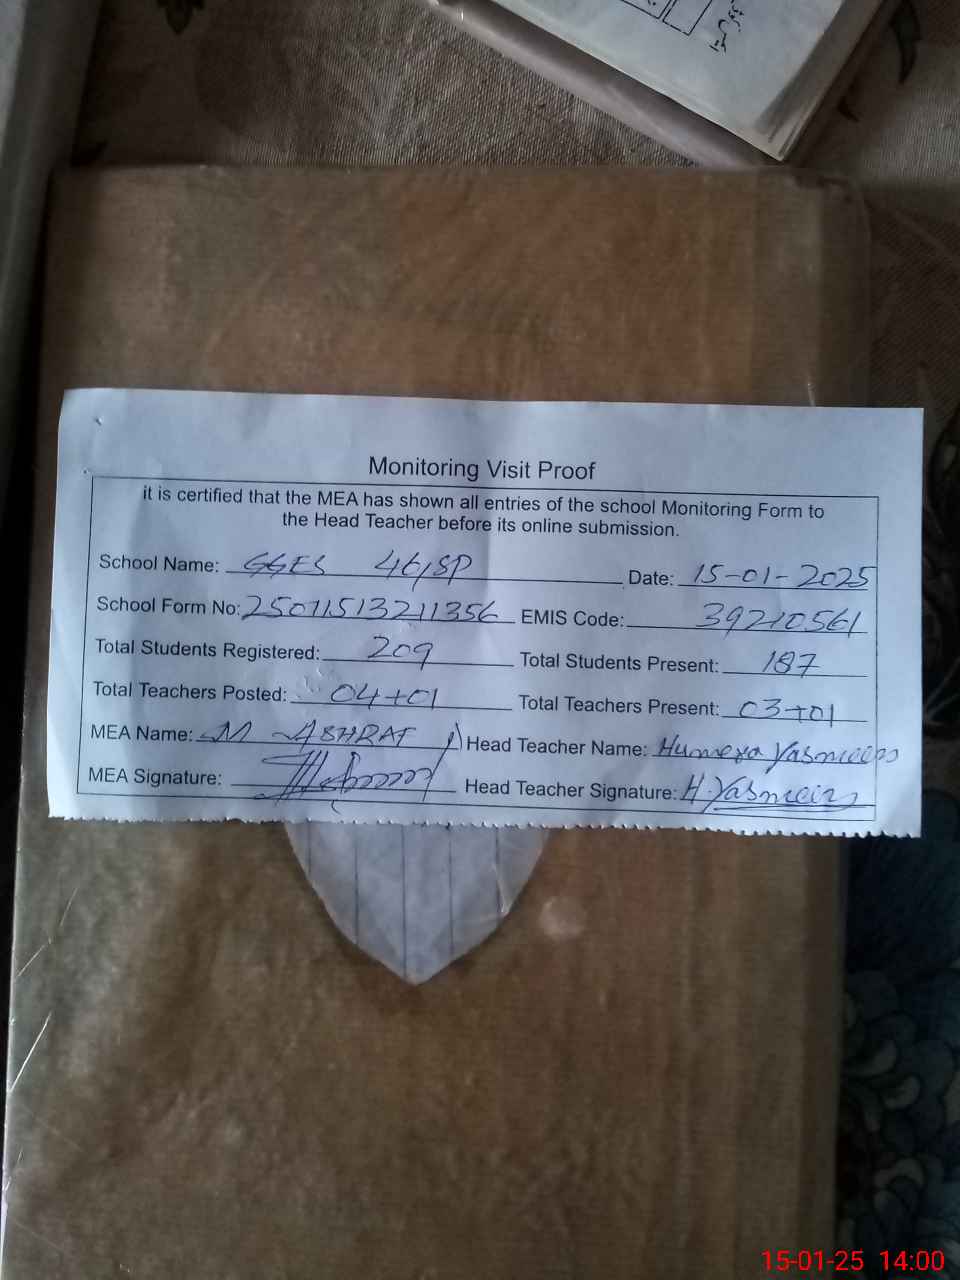 Monitoring Visit Proof
it is certified that the MEA has shown all entries of the school Monitoring Form to
the Head Teacher before its online submission.
School Name: GGES 46/SP Date: 15-01-2025
School Form No: 25011513211356 EMIS Code: 39210561
Total Students Registered: 209 Total Students Present: 187
Total Teachers Posted: 04+01 Total Teachers Present: 03+01
MEA Name: M ASHRAF Head Teacher Name: Humera Yasmeen
MEA Signature: Head Teacher Signature: H. Yasmeen
15-01-25 14:00